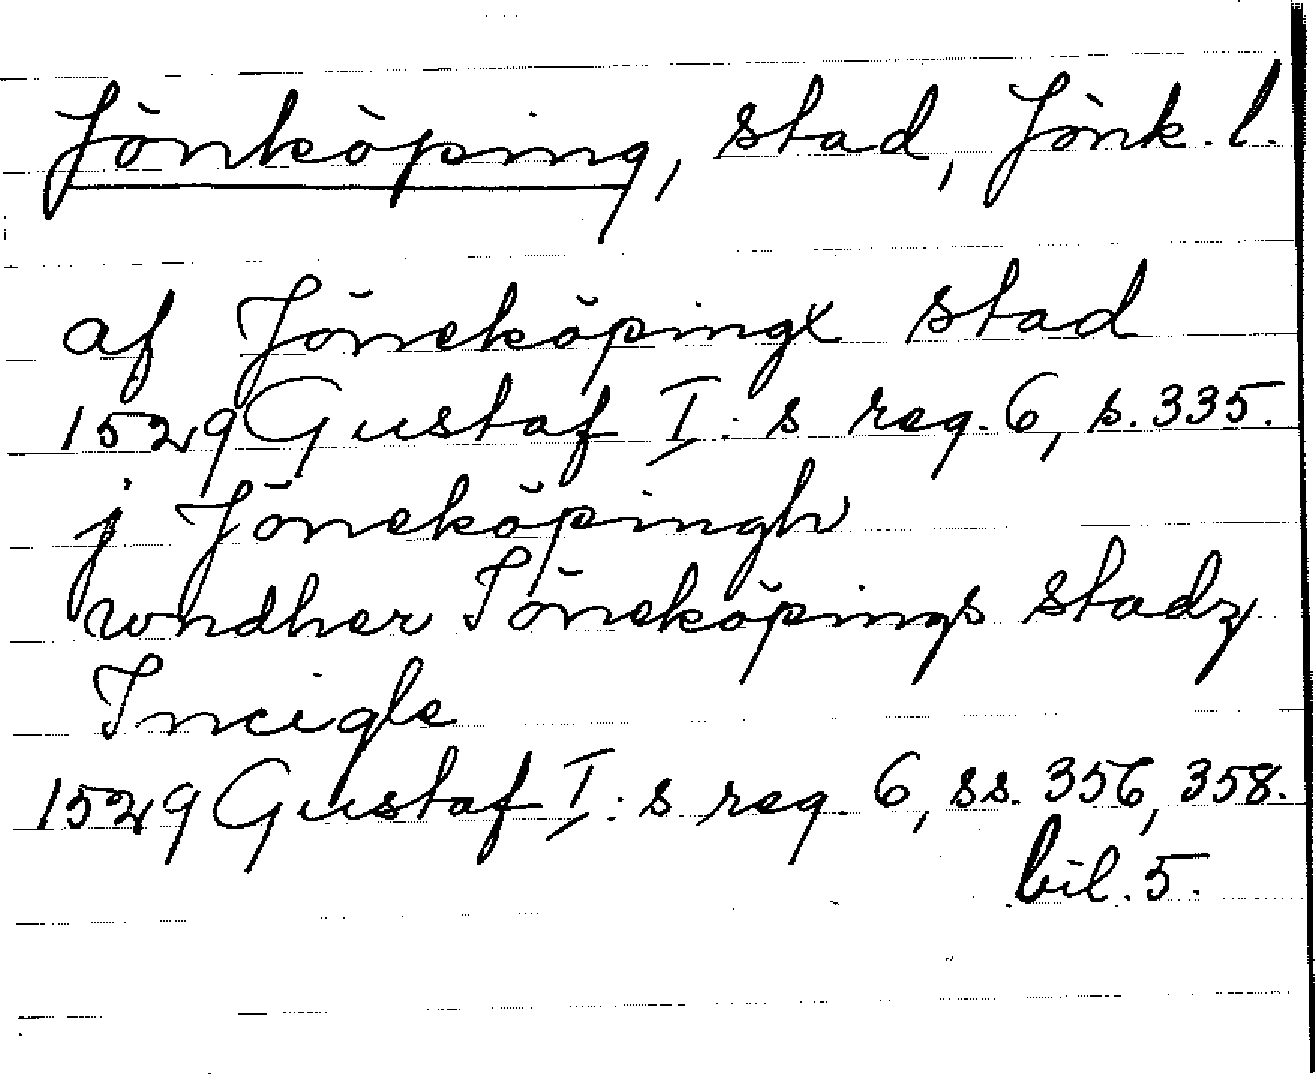 Jönköping, stad, Jönk. l.
af Jönekö̈pingx stad
1529 Gustaf I:s reg. 6, s. 335.
j Jöneköpingh
wndher Iöneköpings stadz
Incigle
1529 Gustaf I:s reg. 6, ss. 356, 358.
bil. 5.